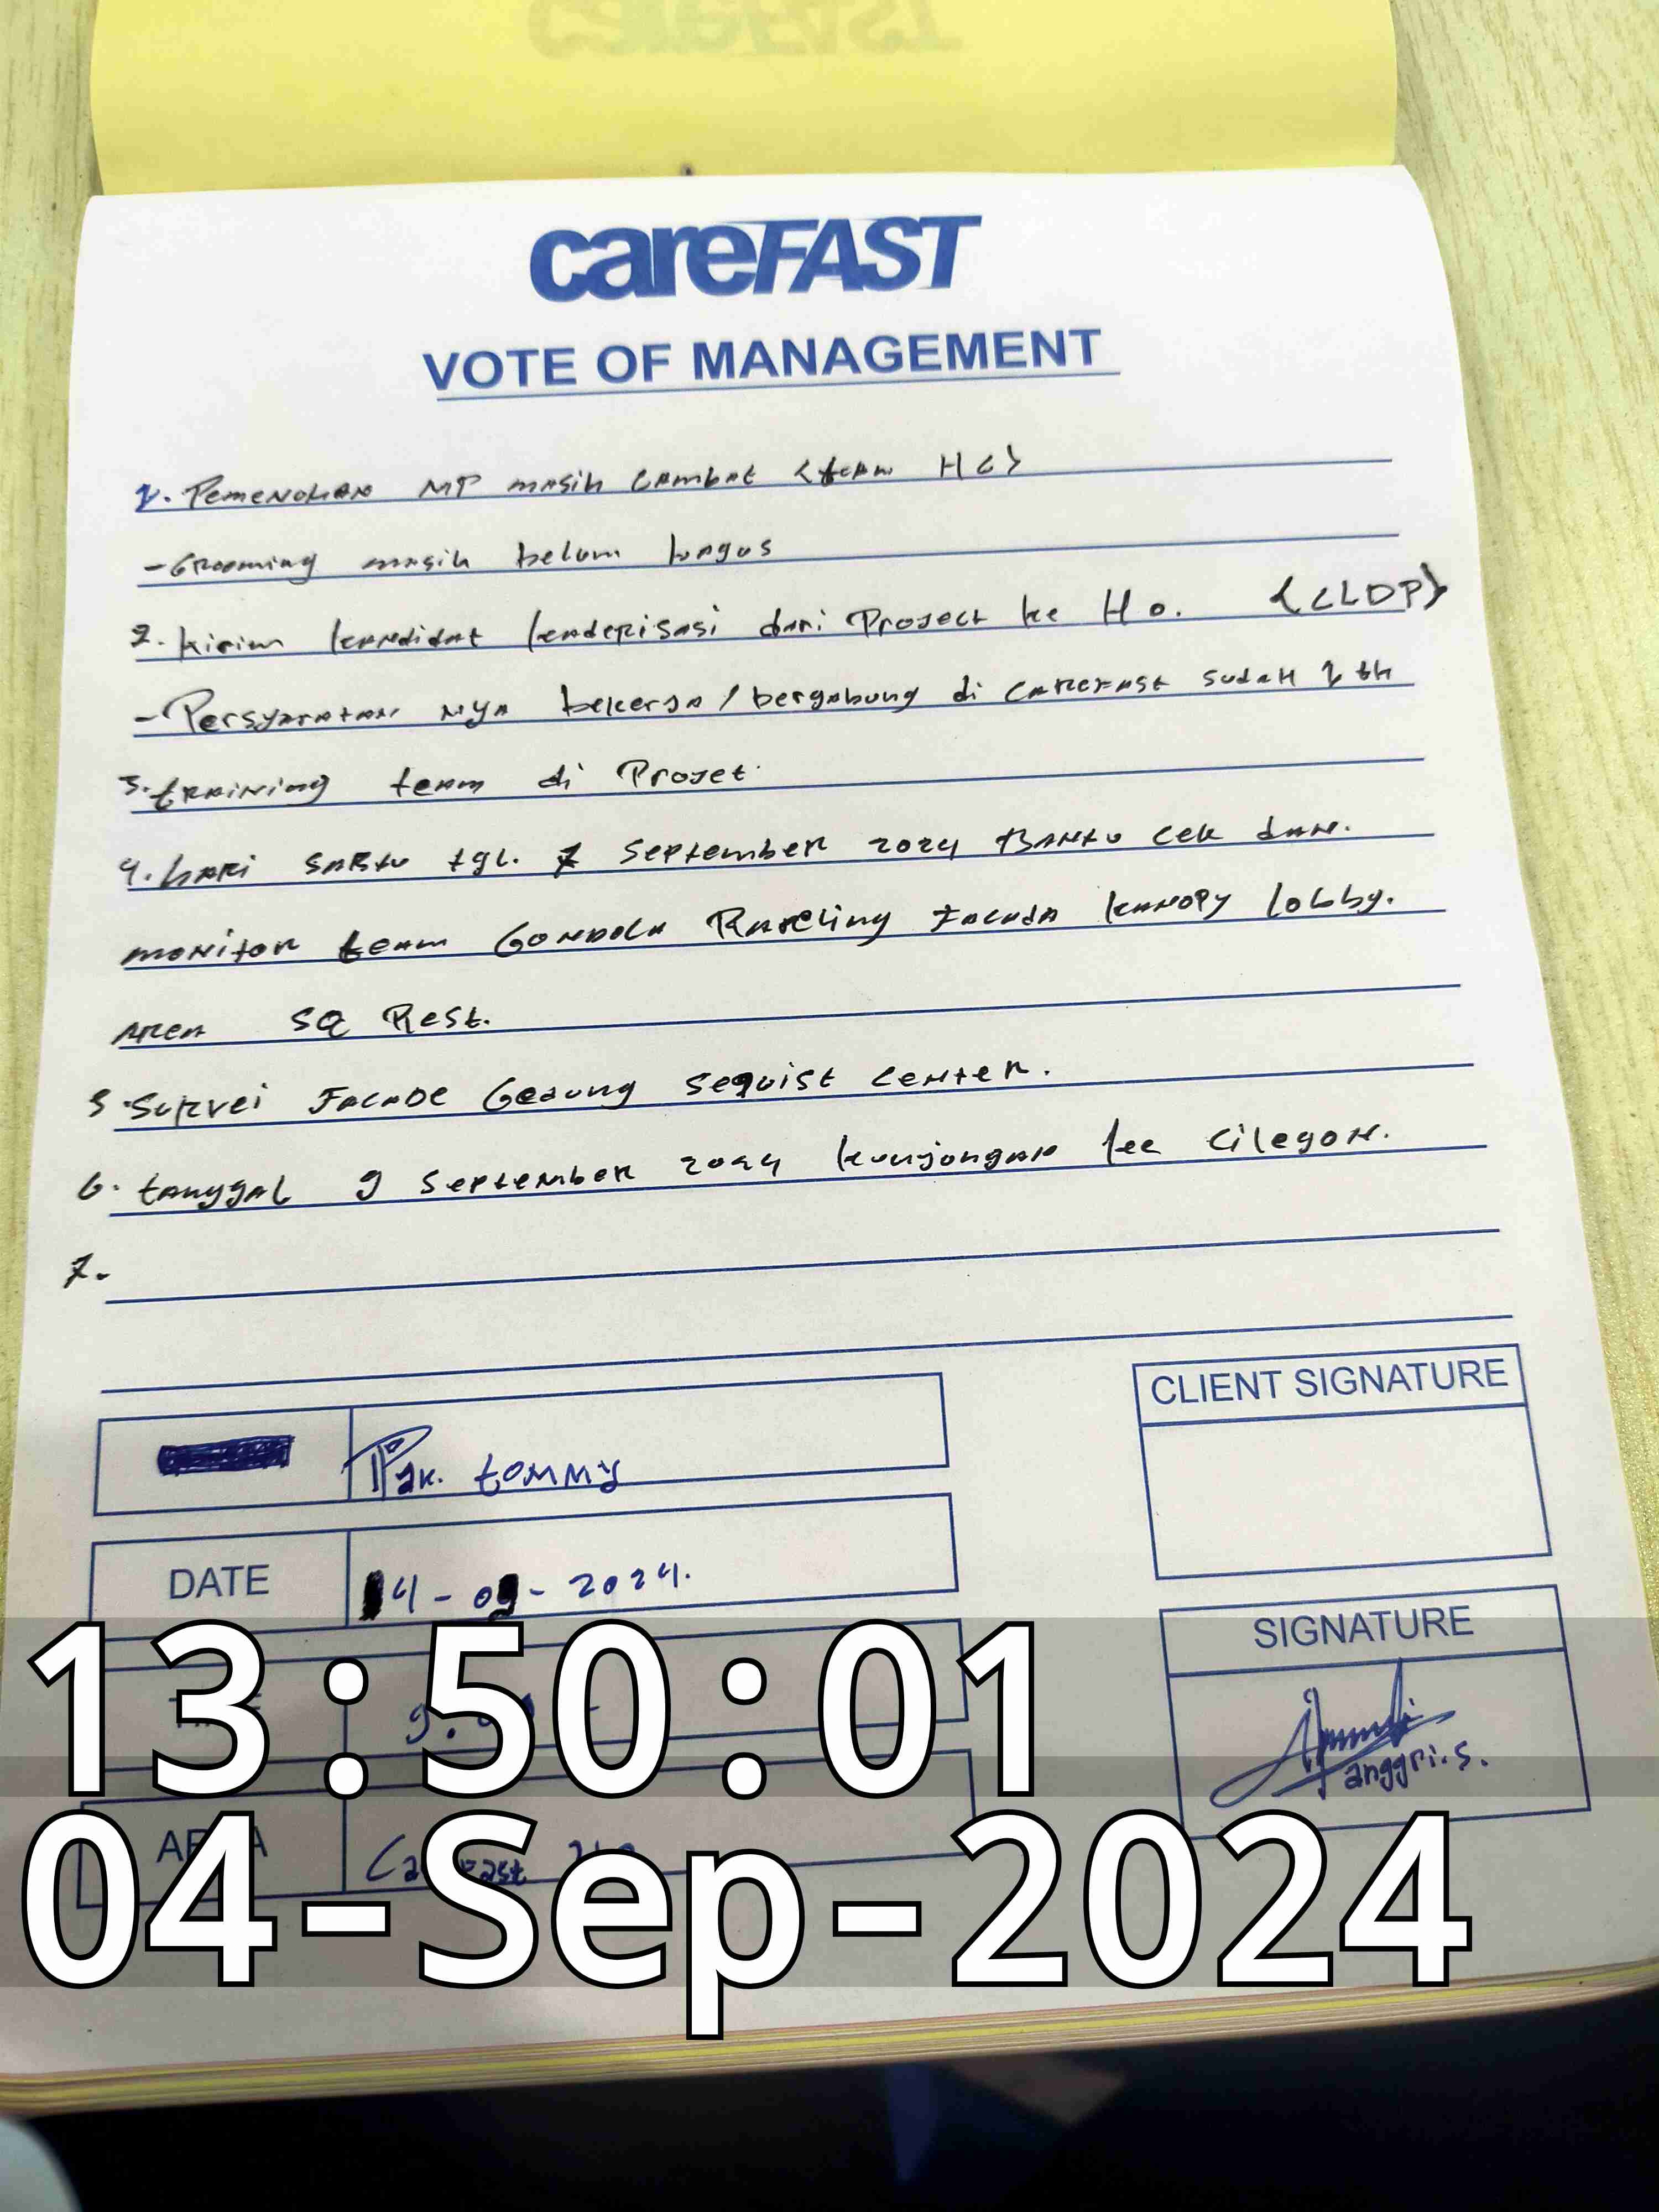 careFAST
VOTE OF MANAGEMENT
1. Pemenuhan MP masih Lambat <team HC>
- Grooming masih belum bagus
2. kirim kandidat kaderisasi dari Project ke Ho. {CLDP}
- Persyaratan nya bekerja / bergabung di carefast sudah 1 th
3. training team di Projet.
4. hari sabtu tgl. 7 September 2024 Bantu cek dan.
monitor team Gondola Rapeling Facada kanopy lobby.
Area SQ Rest.
5. Survei Facade Gedung Sequist Center.
6. tanggal 9 September 2024 kunjungan ke Cilegon.
7.
Pak. tommy
DATE 4-09-2024.
CLIENT SIGNATURE
SIGNATURE
anggri.s.
AREA Carefast
13:50:01
04-Sep-2024